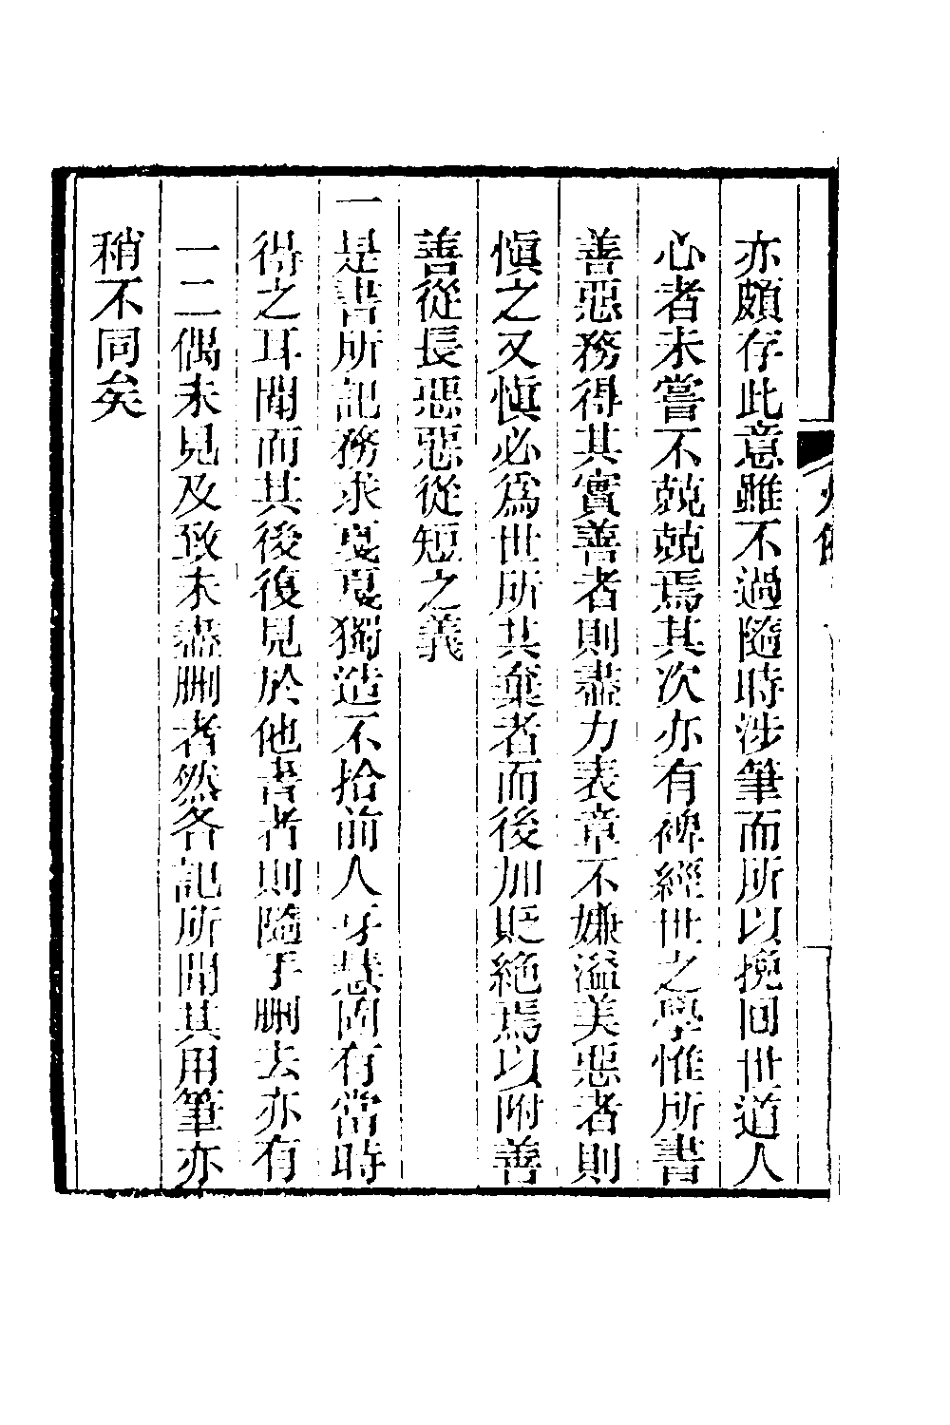 亦頗存此意雖不過隨時涉筆而所以挽回世道人
心者未嘗不兢兢焉其次亦有裨經世之學惟所書
善惡務得其實善者則盡力表章不嫌溢美惡者則
慎之又慎必爲世所共棄者而後加貶絶焉以附善
善從長惡惡從短之義
一是書所記務求戛戛獨造不拾前人牙慧間有當時
得之耳聞而其後復見於他書者則隨手删去亦有
一二偶未見及致未盡删者然各記所聞其用筆亦
稍不同矣